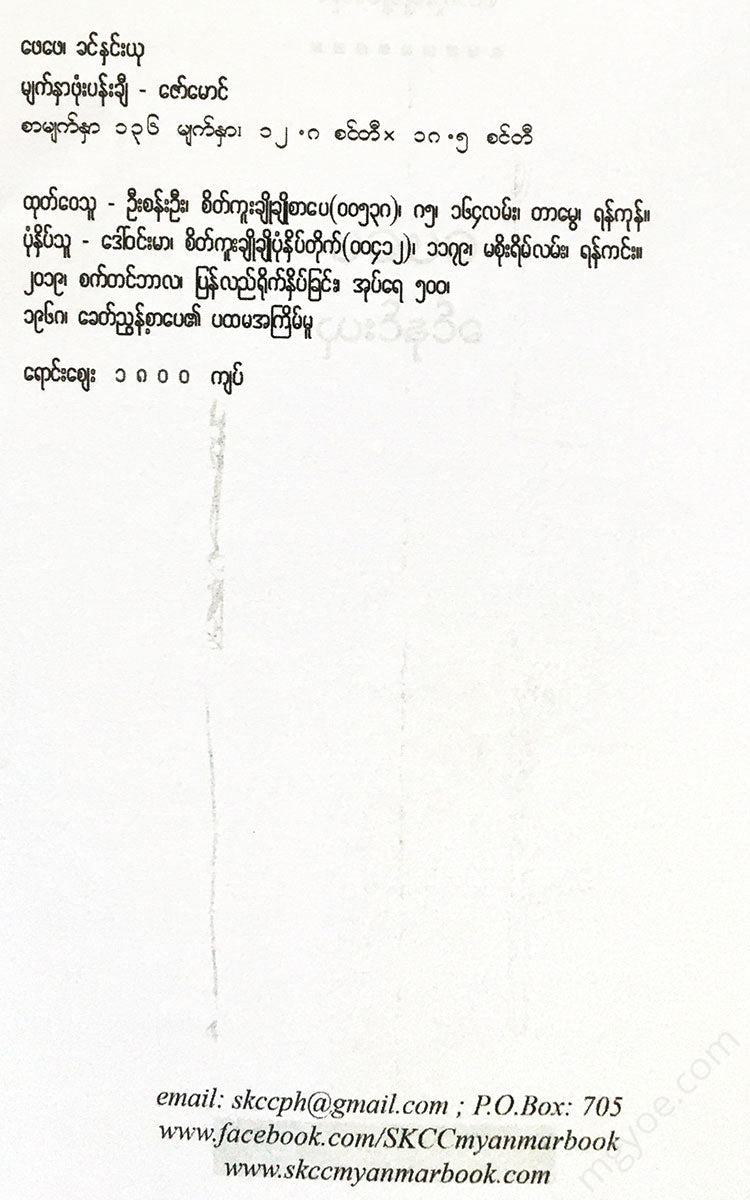 ဖေဖေ၊ ခင်နှင်းယု
မျက်နှာဖုံးပန်းချီ - ဇော်မောင်
စာမျက်နှာ ၁၃၆ မျက်နှာ၊ ၁၂ ·၈ စင်တီ× ၁၈ ·၅ စင်တီ
ထုတ်ဝေသူ - ဦးစန်းဦး၊ စိတ်ကူးချိုချိုစာပေ(၀၀၅၃၈)၊ ၈၅၊ ၁၆၄လမ်း၊ တာမွေ၊ ရန်ကုန်။
ပုံနှိပ်သူ - ဒေါ်ဝင်းမာ၊ စိတ်ကူးချိုချိုပုံနှိပ်တိုက်(၀၀၄၁၂)၊ ၁၁၇၉၊ မစိုးရိမ်လမ်း၊ ရန်ကင်း။
၂၀၁၉၊ စက်တင်ဘာလ၊ ပြန်လည်ရိုက်နှိပ်ခြင်း၊ အုပ်ရေ ၅၀၀၊
၁၉၆၈၊ ခေတ်ညွန့်စာပေ၏ ပထမအကြိမ်မူ
ရောင်းဈေး ၁ ၈ ၀ ၀ ကျပ်
email: skccph@gmail.com ; P.O.Box: 705
www.facebook.com/SKCCmyanmarbook
www.skccmyanmarbook.com
mgyoe.com